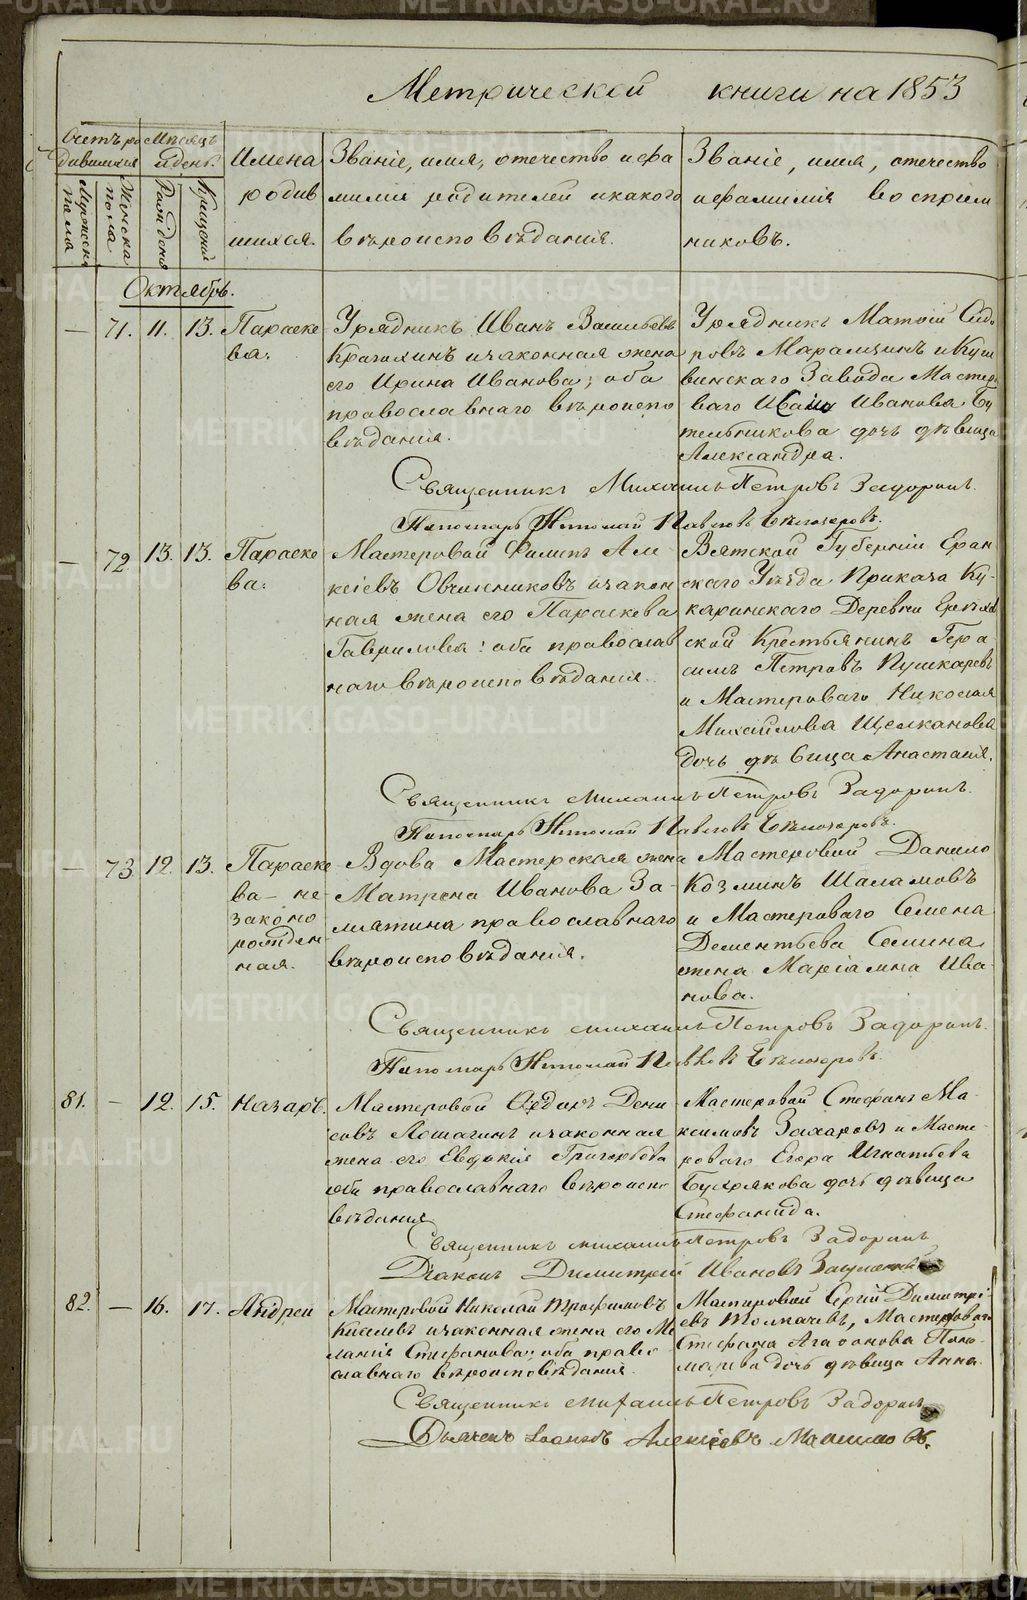 Метрической книги на 1853
Счетъ родившихся
Мѣсяцъ и день.
Имена родившихся.
Званіе, имя, отечество и фамилія родителей и какого вѣроисповѣданія.
Званіе, имя, отечество и фамилія воспріемниковъ.
Мужеска пола
Женска пола
Рожденія
Крещенія
Октябрь.
— 71. 11. 13. Параскева.
Урядникъ Иванъ Васильевъ
и законная жена
его Ирина Иванова, оба
православнаго вѣроиспо
вѣданія.
Урядникъ Матѳій Сидо
ровъ Марамзинъ и Куш
винскаго Завода Мастеро
ваго Ивана Иванова
дочь дѣвица
Александра.
Священникъ Михаилъ Петровъ Задоринъ.
Пономарь Николай Павловъ Бѣлозеровъ.
— 72. 13. 13. Параске
ва.
Мастеровой Филипъ Але
ксіевъ Овчинниковъ и закон
ная жена его Параскева
Гаврилова: оба православ
наго вѣроисповѣданія.
Вятской Губерніи Еран
скаго Уѣзда Приказа Ку-
каринскаго Деревни
Крестьянинъ Гера
симъ Петровъ Пушкаревъ
и Мастероваго Николая
Михайлова Щелканова
дочь дѣвица Анастасія.
Священникъ Михаилъ Петровъ Задоринъ.
Пономарь Николай Павловъ Бѣлозеровъ.
— 73. 12. 13. Параске
ва — не
законо
рожден
ная.
Вдова Мастерская жена
Матрена Иванова За-
мятина православнаго
вѣроисповѣданія.
Мастеровой Данило
Козминъ Шаламовъ
и Мастероваго Семена
Дементьева Семина
жена Маріамна Ива-
нова.
Священникъ Михаилъ Петровъ Задоринъ.
Пономарь Николай Павловъ Бѣлозеровъ.
81. — 12. 15. Назаръ.
Мастеровой Ѳедоръ Дени
совъ Лошагинъ и законная
жена его Евдокія Григорьева
оба православнаго вѣроиспо
вѣданія
Мастеровой Стефанъ Ма-
ксимовъ Захаровъ и Масте-
роваго Егора Игнатьева
Бушуякова дочь дѣвица
Стефанида.
Священникъ Михаилъ Петровъ Задоринъ
Діаконъ Димитрій Ивановъ
82. — 16. 17. Андрей
Мастеровой Николай Трофимовъ
Киселевъ и законная жена его Ме
ланія Стефанова; оба право-
славнаго вѣроисповѣданія.
Мастеровой Сергій Димитрі-
евъ Толкачевъ, Мастероваго
Стефана Агафонова Поно-
марева дочь дѣвица Анна.
Священникъ Михаилъ Петровъ Задоринъ
Дьяконъ Іоаннъ Алексіевъ
METRIKI.GASO-URAL.RU